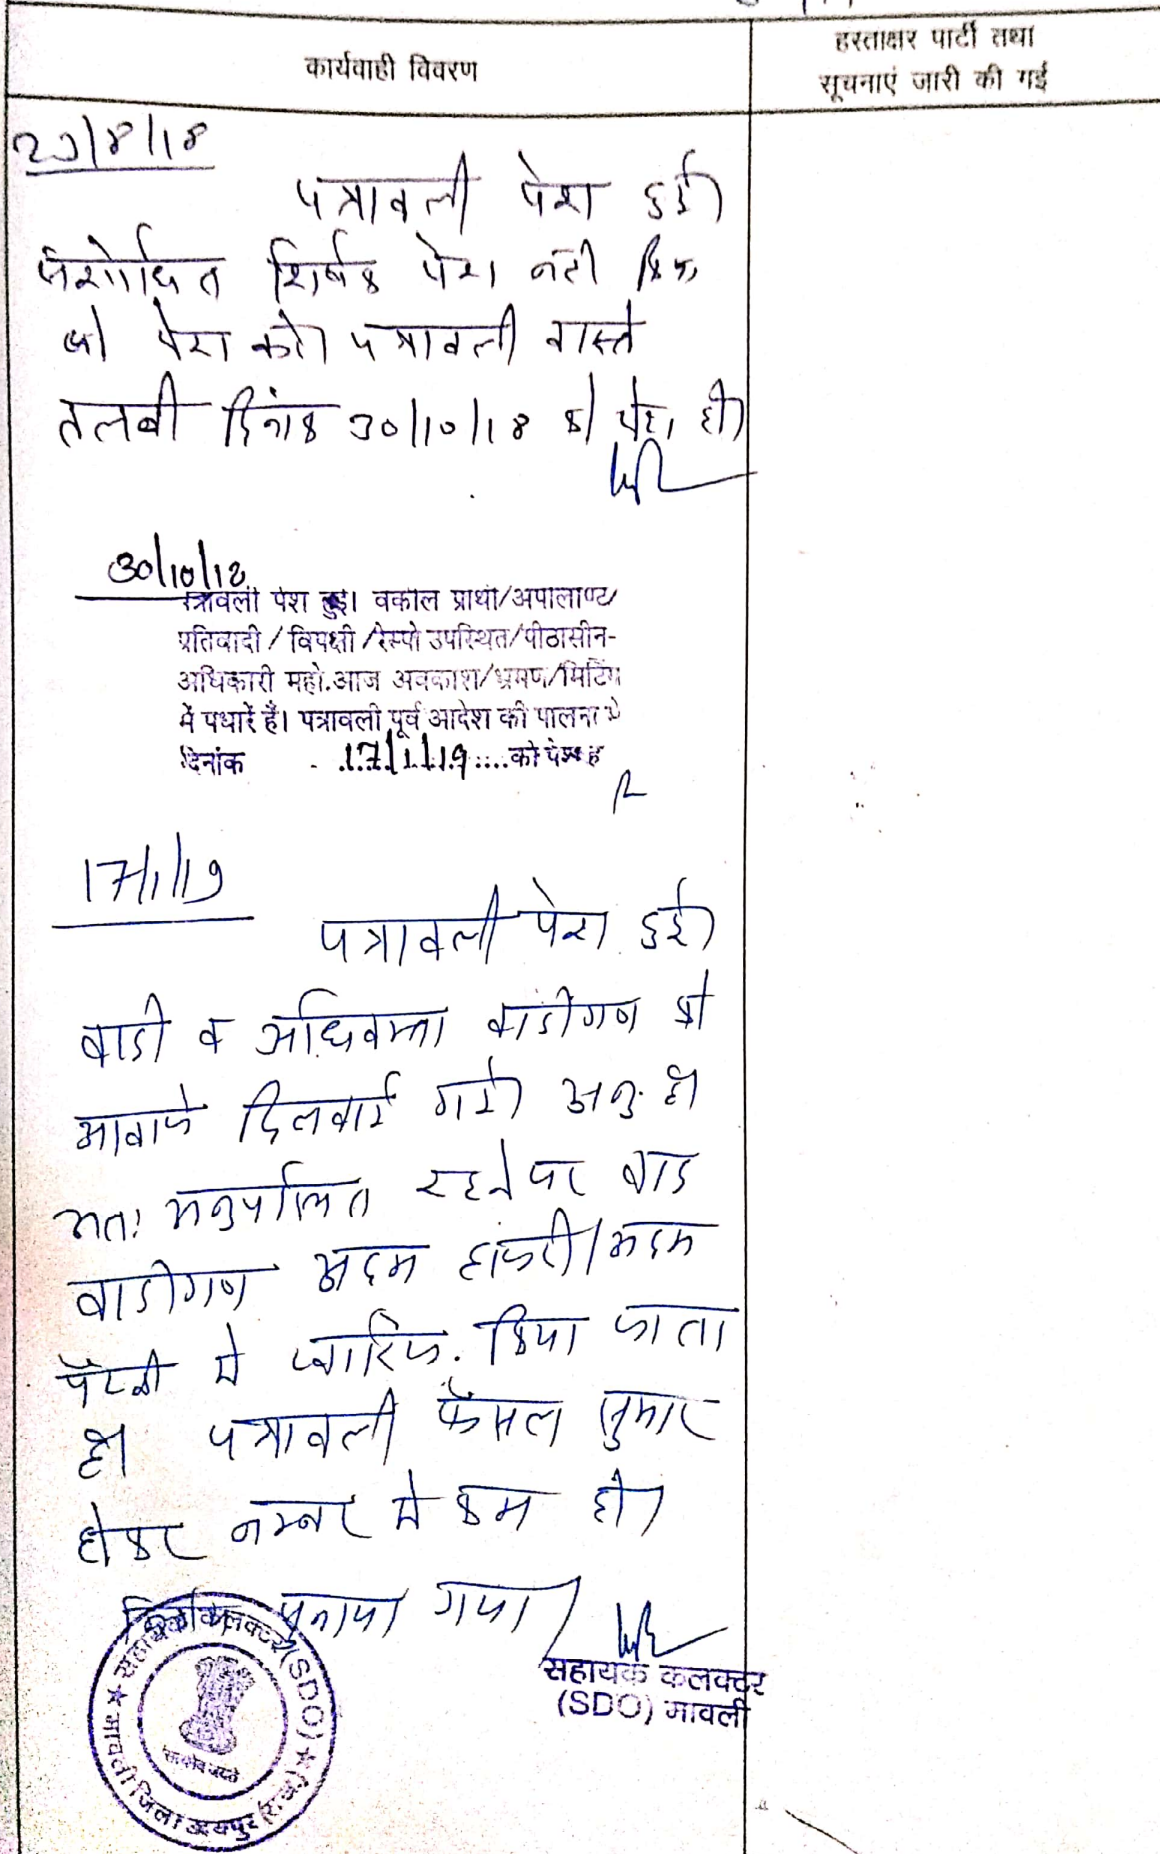 कार्यवाही विवरण
हस्ताक्षर पार्टी तथा
सूचनाएं जारी की गई
पत्रावली पेश हुई।
संशोधित शिर्षक पेश नही किया
जो पेश करे। पत्रावली वास्ते
तलबी दिनांक 30/10/18 को पेश हो।
30/10/18
पत्रावली पेश हुई। वकील प्रार्थी/अपीलाण्ट/
प्रतिवादी/विपक्षी/रेस्पो उपस्थित/पीठासीन-
अधिकारी महो.आज अवकाश/भ्रमण/मिटिंग
में पधारें हैं। पत्रावली पूर्व आदेश की पालना मे
दिनांक 17/1/19 को पेश हो
17/1/19
पत्रावली पेश हुई।
वादी व अधिवक्ता वादीगण को
आवाजे दिलवाई गई। अनु. है।
अतः अनुपस्थित रहने पर वाद
वादीगण अदम हाजरी/अदम
पैरवी मे खारिज किया जाता
है। पत्रावली फैसल सुमार
होकर नम्बर से कम हो।
सुनाया गया।
सहायक कलक्टर
(SDO) मावली
सहायक कलक्टर (SDO)
मावली जिला उदयपुर (राज.)
सत्यमेव जयते